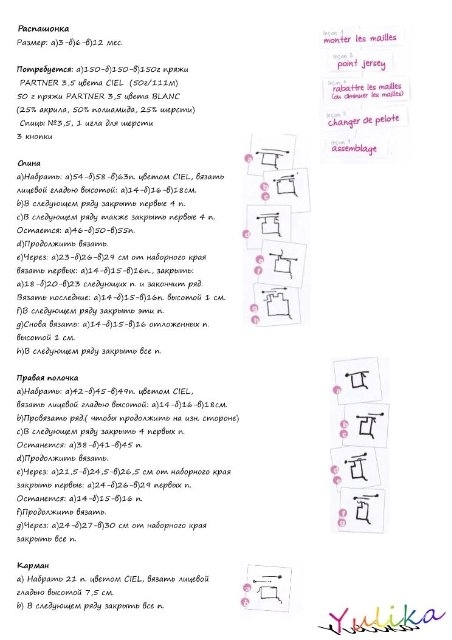 Распашонка
Размер: а)3-б)6-в)12 мес.
Потребуется: а)150-б)150-в)150г пряжи
PARTNER 3,5 цвета CIEL (50г/111м)
50 г пряжи PARTNER 3,5 цвета BLANC
(25% акрила, 50% полиамида, 25% шерсти)
Спицы №3,5, 1 игла для шерсти
3 кнопки
leçon
monter les mailles
leçon
point jersey
leçon
rabattre les mailles
(ou diminuer les mailles)
leçon
changer de pelote
leçon
assemblage
Спина
а)Набрать: а)54-б)58-в)63п. цветом CIEL, вязать
лицевой гладью высотой: а)14-б)16-в)18см.
b)В следующем ряду закрыть первые 4 п.
c)В следующем ряду также закрыть первые 4 п.
Остается: а)46-б)50-в)55п.
d)Продолжить вязать.
e)Через: а)23-б)26-в)29 см от наборного края
вязать первых: а)14-б)15-в)16п., закрыть:
а)18-б)20-в)23 следующих п. и закончит ряд.
Вязать последние: а)14-б)15-в)16п. высотой 1 см.
f)В следующем ряду закрыть эти п.
g)Снова вязать: а)14-б)15-в)16 отложенных п.
высотой 1 см.
h)В следующем ряду закрыть все п.
Правая полочка
а)Набрать: а)42-б)45-в)49п. цветом CIEL,
вязать лицевой гладью высотой: а)14-б)16-в)18см.
b)Провязать ряд.( чтобы продолжить на изн. стороне)
c)В следующем ряду закрыть 4 первых п.
Останется: а)38-б)41-в)45 п.
d)Продолжить вязать.
e)Через: а)21,5-б)24,5-в)26,5 см от наборного края
закрыть первые: а)24-б)26-в)29 первых п.
Останется: а)14-б)15-в)16 п.
f)Продолжить вязать.
g)Через: а)24-б)27-в)30 см от наборного края
закрыть все п.
Карман
а) Набрать 21 п. цветом CIEL, вязать лицевой
гладью высотой 7,5 см.
b) В следующем ряду закрыть все п.
Yulika